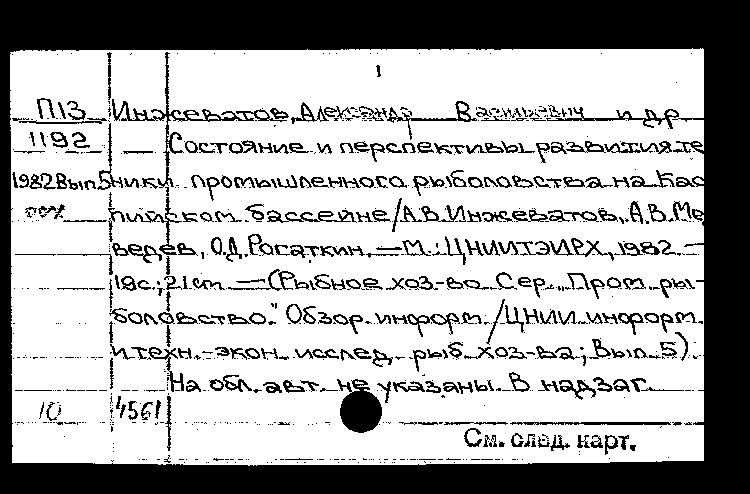 1
П13 Инжеватов, Александр Васильевич и др
1192 — Состояние и перспективы развития те
1982 Вып 5 ники промышленного рыболовства на Кас
пийском бассейне / А.В. Инжеватов, А.В. Ме
ведев, О.Д. Рогаткин. — М.: ЦНИИТЭИРХ, 1982 —
19с.; 21 см — (Рыбное хоз-во Сер. „Пром. ры-
боловство." Обзор. информ. / ЦНИИ информ.
и техн.-экон. исслед. рыб. хоз-ва; Вып. 5).
На обл. авт. не указаны. В надзаг.
10 4561
См. след. карт.